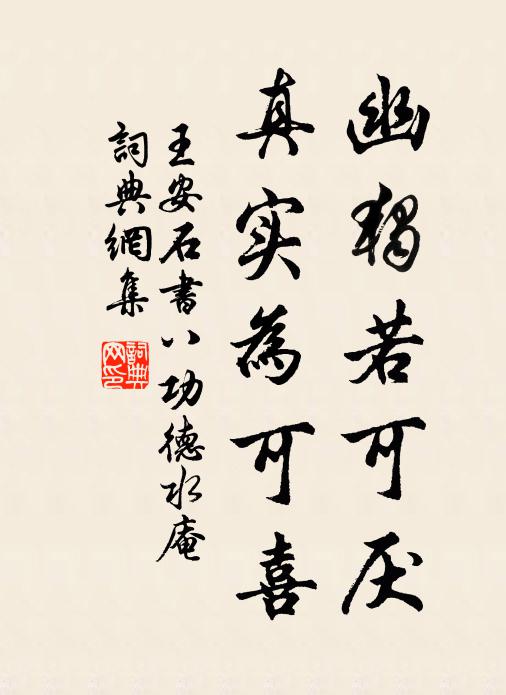 幽獨若可厌
真实為可喜
王安石書八功德水庵
詞典網集
詞典网印